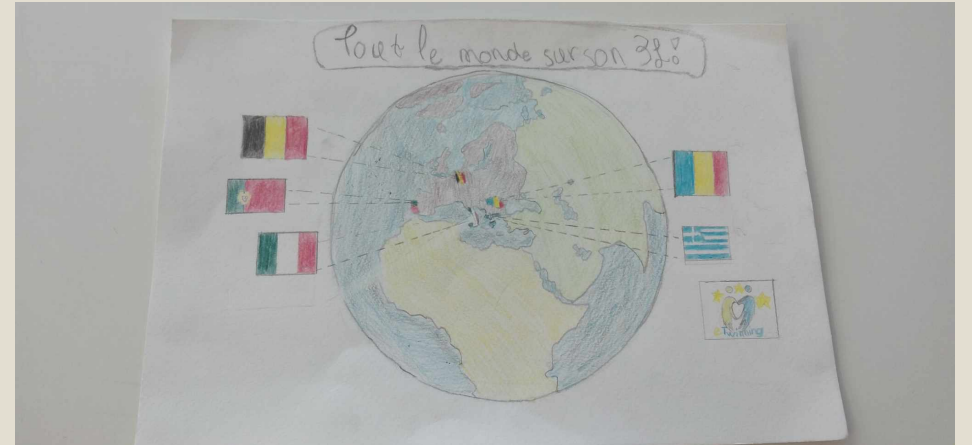 Tout le monde sur son 31!
eTwinning